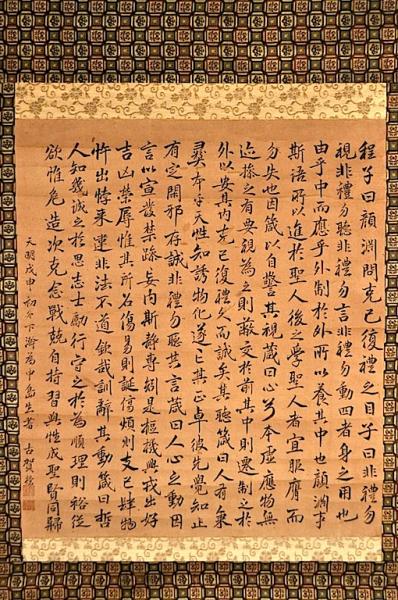 程子曰顔淵問克己復禮之目子曰非禮勿
視非禮勿聽非禮勿言非禮勿動四者身之用也
由乎中而應乎外制於外所以養其中也顔淵事
斯語所以進於聖人後之學聖人者宜服膺而
勿失也因箴以自警其視箴曰心兮本虚應物無
迹操之有要視為之則蔽交於前其中則遷制之於
外以安其内克己復禮久而誠矣其聽箴曰人有秉
彛本乎天性知誘物化遂亡其正卓彼先覺知止
有定閑邪存誠非禮勿聽其言箴曰人心之動因
言以宣發禁躁妄内斯靜專矧是樞機興戎出好
吉凶榮辱惟其所召傷易則誕傷煩則支己肆物
忤出悖来違非法不道欽哉訓辭其動箴曰哲
人知幾誠之於思志士勵行守之於為順理則裕從
欲惟危造次克念戰兢自持習與性成聖賢同歸
天明戊申初冬下澣為中島生書 古賀